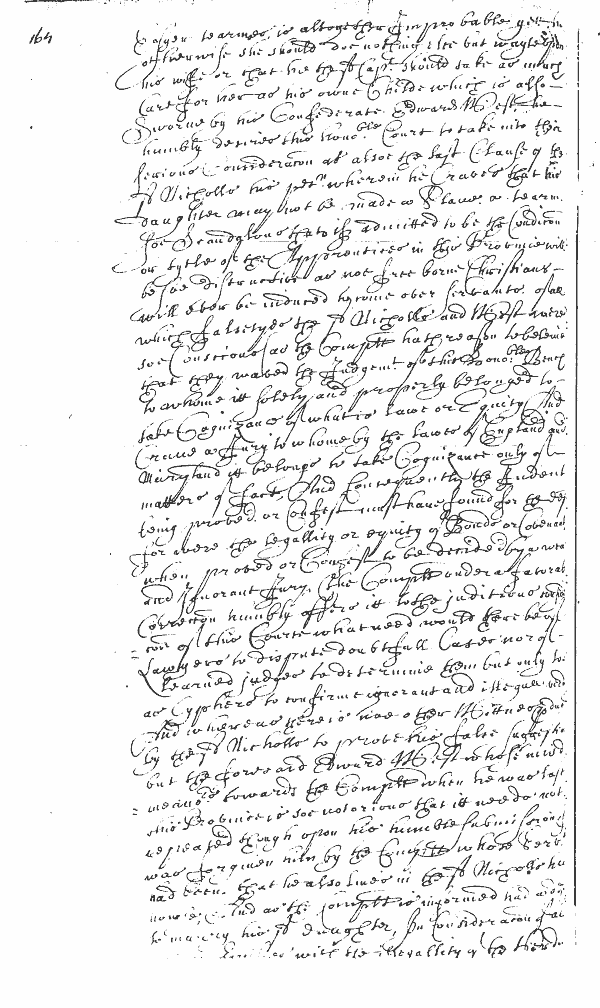 164
termes is altogether Improbable
otherwise she should doe nothing else but wayte upon
his wife or that he the sd Capt should take as much
Care for her as his owne Childe which is also
Sworne by his Confederate Edward West he
humbly desires this honoble Court to take into their
serious Consideracon as alsoe the last Clause of the
sd Nicholls his petn wherein he Craves that his
daughter may not be made a Slave a tearme
soe Scandalous that if admitted to be the Condicon
or tytle of the Apprentices in this Province will
be soe distructive as noe free borne Christians
will ever be induced to come over servants of all
which falsetyes the sd Nicholls and West were
soe Conscious as the Complt hath reason to beleive
that they waved the Judgemt of this honoble Bench
to whome it solely and properly belonged to
take Cognizance of what is Lawe or Equity And
Crave a Jury to whome by the Lawes of England and
Maryland it belongs to take Cognizance only of
matters of fact, And Consequently the Indent
being proved or Confest must have found for the deft
for were the legallity or equity of Bonds or Covenants
when proved or Confest to be decided by a
and Ignorant Jury, the Complt under a favorable
Correccon humbly offers it to the juditious
con of this Courte what need would there be of
Lawyers to dispute doubtfull Cases nor of
Learned judges to determine them but only
as Cyphers to confirme ignorant and illegall
And whereas there is noe other Wittness
by the sd Nicholls to prove his false suggestion
but the forward Edward West whose
towards the Complt when he was last
this Province is soe notorious that it needs not
repeated though upon his humble submission
was forgiven him by the Complt whose
had been that he also lives in the sd Nicholls his
howse, And as the Complt is informed had
to marry his sd daughter, In Consideracon of all
with the illegallity of the